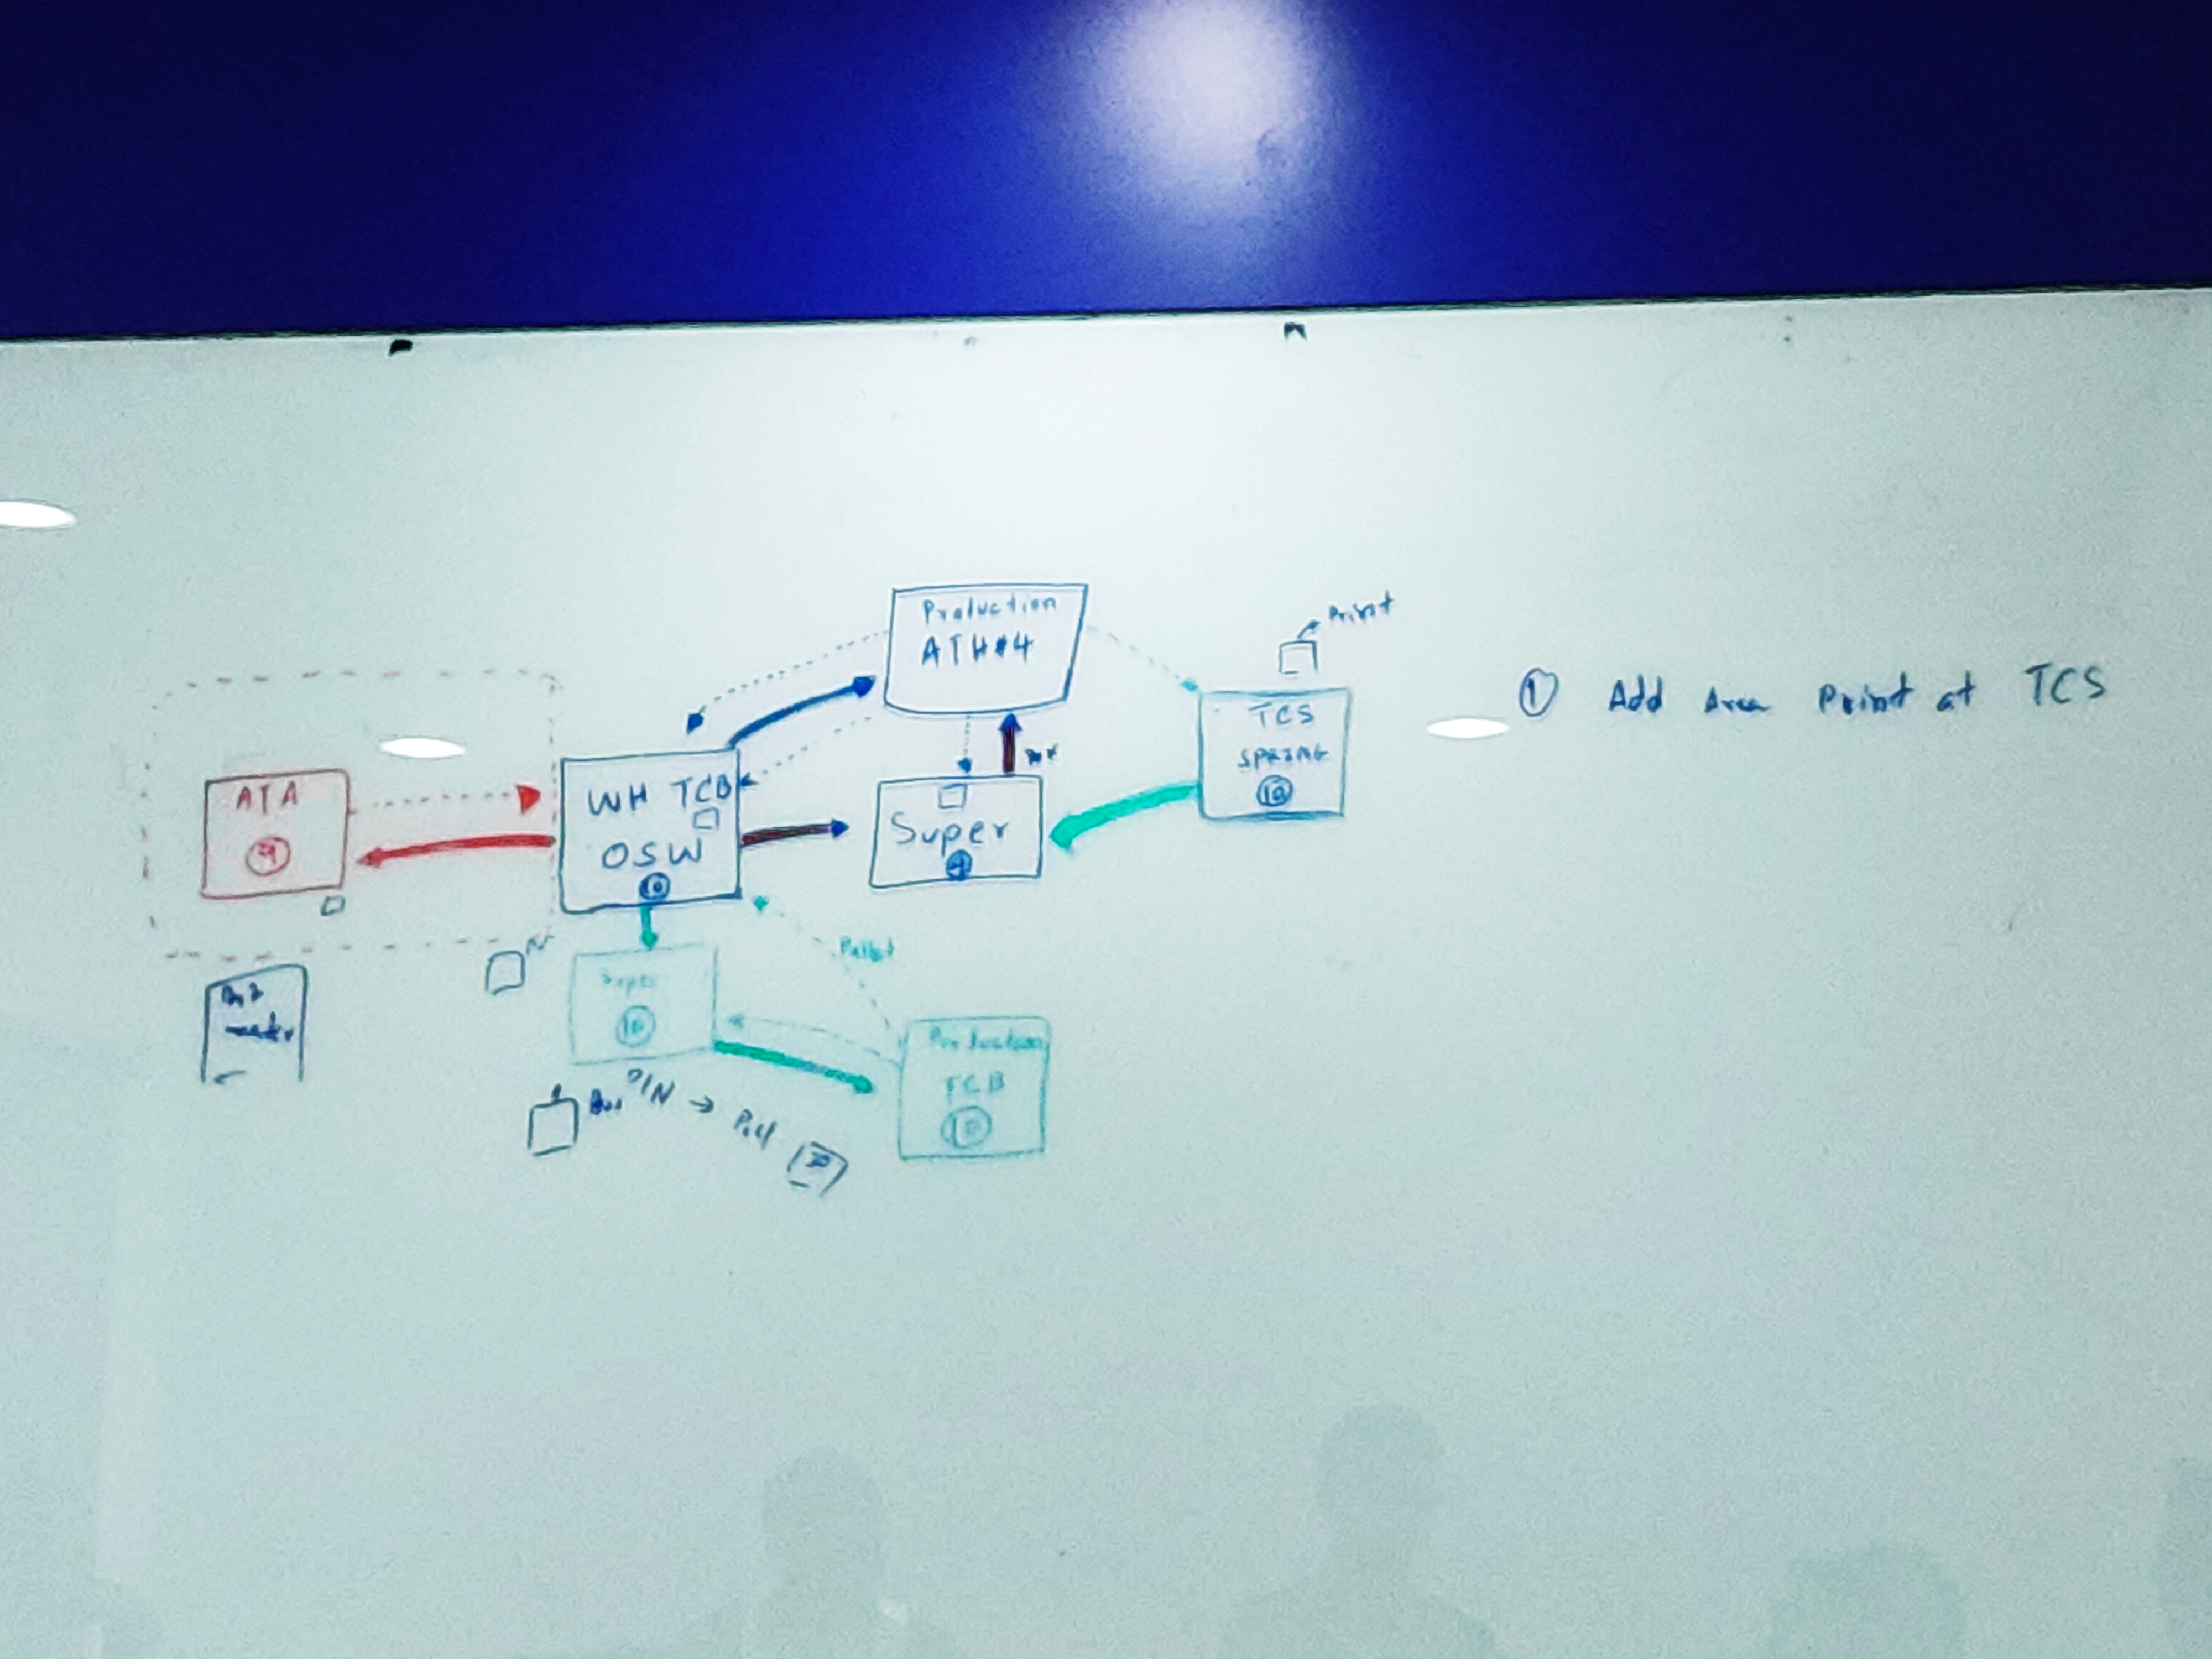 Production
ATH#4
Print
TCS
SPRING
10
① Add Area Print at TCS
ATA
WH TCB
OSW
10
Super
4
Pallet
Super
10
Production
TCB
10
P/N →